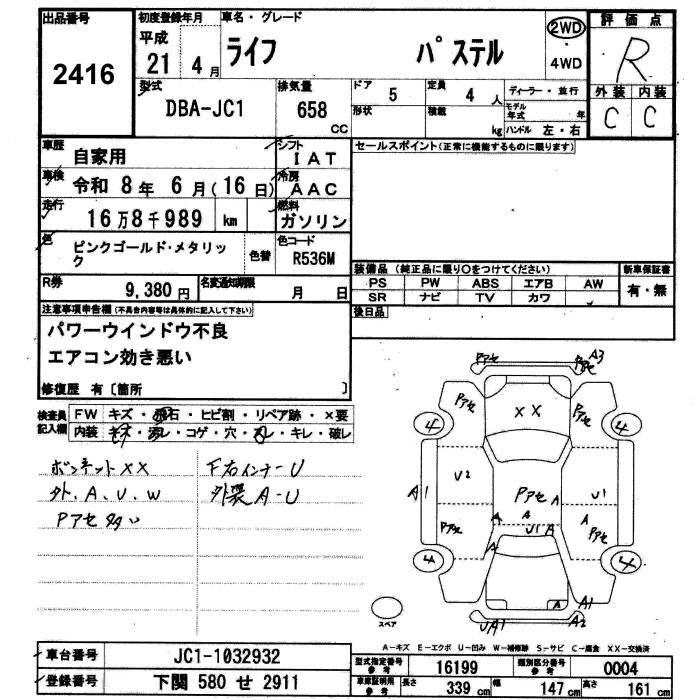 出品番号
2416
初度登録年月
平成
21 4月
車名・グレード
ライフ パステル
2WD
4WD
評価点
R
外装 内装
C C
型式
DBA-JC1
排気量
658
cc
ドア
5
定員
4 人
ディーラー・並行
形状
積載
kg
モデル年式 年
ハンドル 左・右
車歴
自家用
シフト
IAT
車検
令和 8年 6月(16日)
冷房
AAC
走行
16万8千989 km
燃料
ガソリン
色
ピンクゴールド・メタリック
色替
色コード
R536M
R券
9,380円
名変通知期限
月 日
セールスポイント(正常に機能するものに限ります)
装備品 (純正品に限り○をつけてください)
PS PW ABS エアB AW
SR ナビ TV カワ
新車保証書
有・無
後日品
注意事項申告欄(不具合内容等は具体的に記入して下さい)
パワーウインドウ不良
エアコン効き悪い
修復歴 有〔箇所 〕
検査員
記入欄
FW キズ・飛石・ヒビ割・リペア跡・×要
内装 キズ・汚レ・コゲ・穴・スレ・キレ・破レ
ボンネットXX
外、A、U、W
Pアセ多い
F右インナーU
外装A-U
Pアセ
Pアセ A3
Pアセ
XX
Pアセ
4
4
U2
PアセA
U1
A1
A
A
U1 A
Pアセ
A
Pアセ
A
4
4
A
A1
UA1
A2
スペア
A-キズ E-エクボ U-凹み W-補修跡 S-サビ C-腐食 XX-交換済
車台番号
JC1-1032932
登録番号
下関 580 せ 2911
型式指定番号
参考
16199
類別区分番号
参考
0004
車庫証明用
参考
長さ
339 cm
幅
147 cm
高さ
161 cm